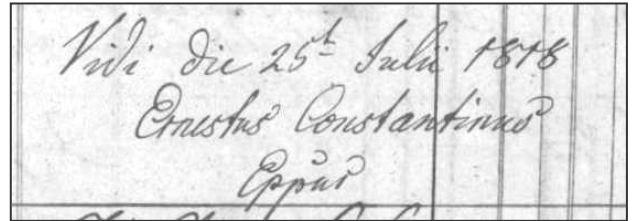 Vidi die 25t Julii 1818
Ernestus Constantinus
Eppus